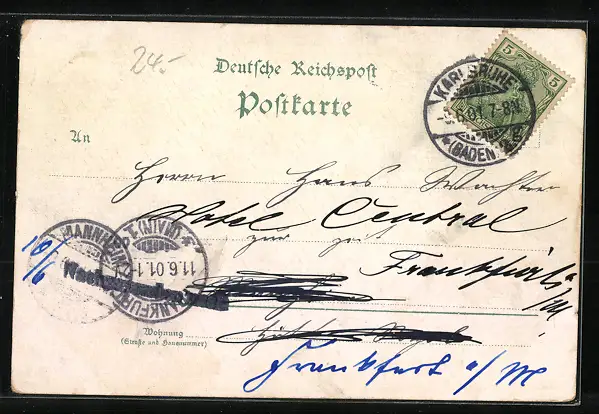 24.-
Deutsche Reichspost
Postkarte
5 5
KARLSRUHE
7-8N
(BADEN)
An
Herrn Hans Wachter
Hotel Central
zur
Frankfurt
a/M.
MANNHEIM
FRANKFURT (MAIN) 1
11.6.01.1-
10/6
Wohnung
(Straße und Hausnummer)
Frankfurt a/M